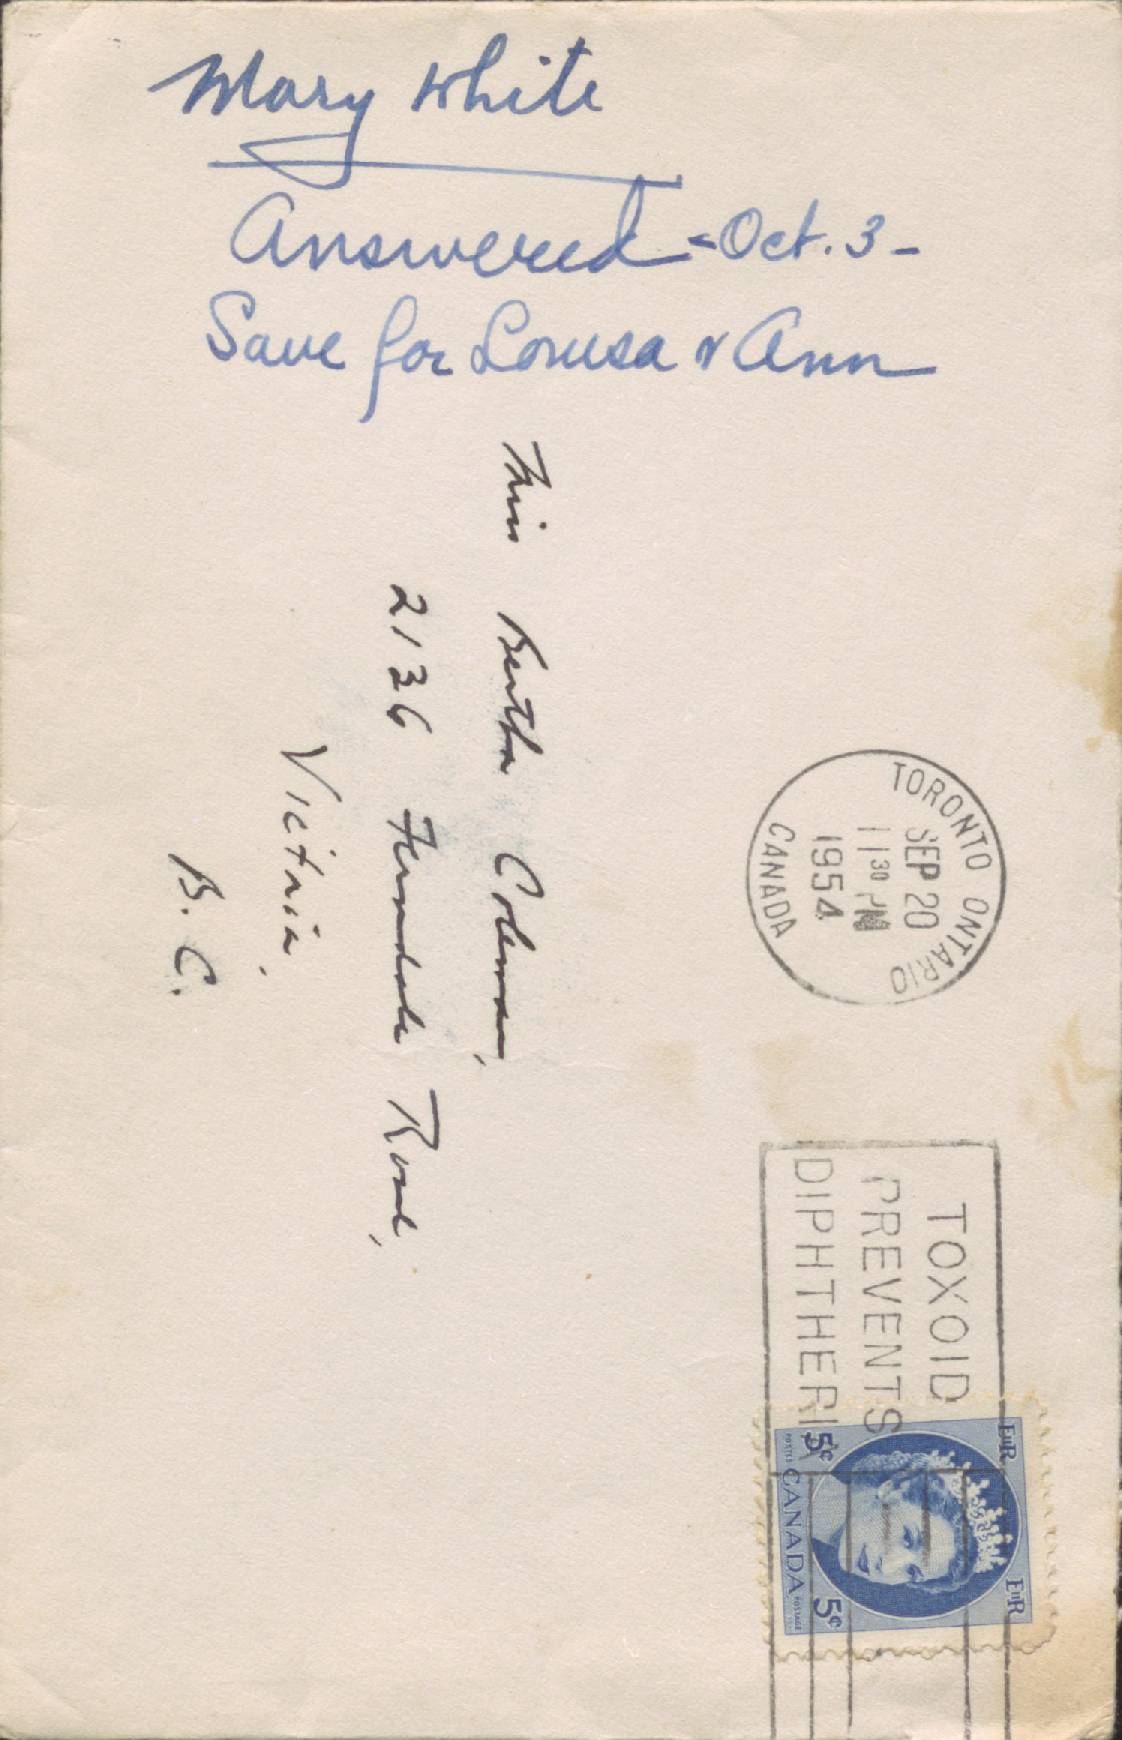 Mary White
Answered - Oct. 3 -
Save for Louisa & Ann
Miss Bertha Coleman,
2136 Ferndale Road,
Victoria,
B. C.
TORONTO ONTARIO
SEP 20
11 30 PM
1954
CANADA
TOXOID
PREVENTS
DIPHTHERIA
EIIR EIIR
5¢ 5¢
POSTES CANADA POSTAGE